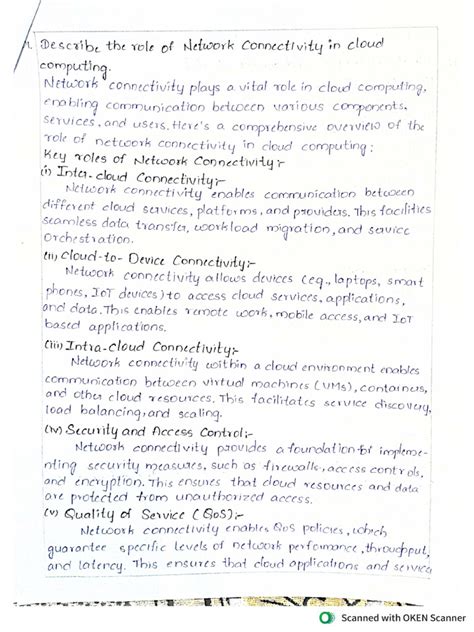 1. Describe the role of Network Connectivity in cloud
computing.
Network connectivity plays a vital role in cloud computing,
enabling communication between various components,
services, and users. Here's a comprehensive overview of the
role of network connectivity in cloud computing:
Key roles of Network Connectivity:-
(i) Inter-cloud Connectivity:-
Network connectivity enables communication between
different cloud services, platforms, and providers. This facilities
seamless data transfer, workload migration, and service
orchestration.
(ii) Cloud-to-Device Connectivity:-
Network connectivity allows devices (eg., laptops, smart
phones, IoT devices) to access cloud services, applications,
and data. This enables remote work, mobile access, and IoT
based applications.
(iii) Intra-Cloud Connectivity:-
Network connectivity within a cloud environment enables
communication between virtual machines (VMs), containers,
and other cloud resources. This facilitates service discovery,
load balancing, and scaling.
(iv) Security and Access Control:-
Network connectivity provides a foundation for impleme-
nting security measures, such as firewalls, access controls,
and encryption. This ensures that cloud resources and data
are protected from unauthorized access.
(v) Quality of Service (QoS):-
Network connectivity enables QoS policies, which
guarantee specific levels of network performance, throughput,
and latency. This ensures that cloud applications and service
Scanned with OKEN Scanner